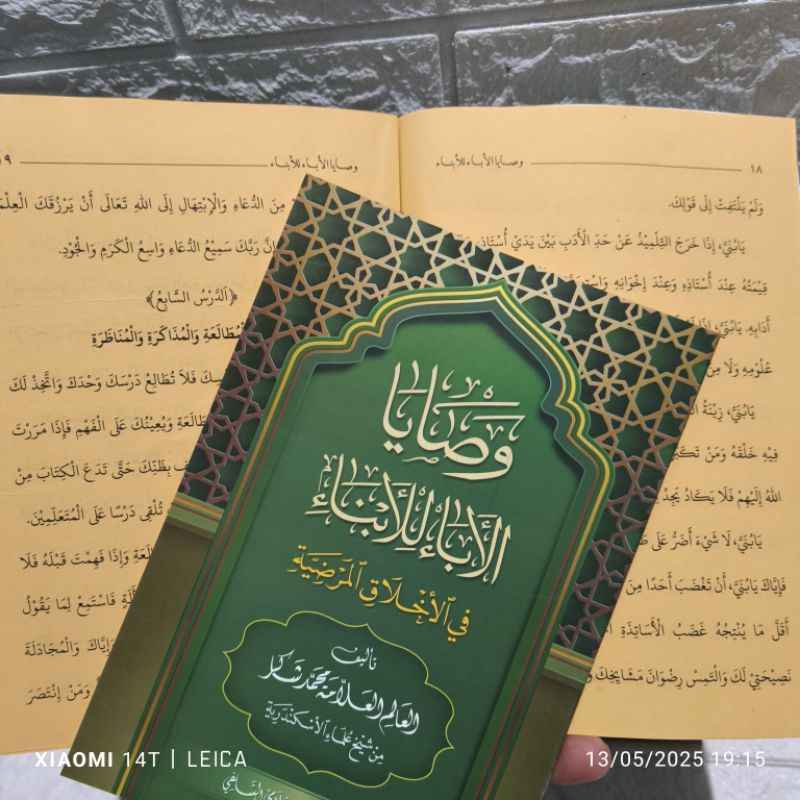 ١٨
وصايا الأباء للأبناء
وَلَمْ يَلْتَفِتْ إِلَى قَوْلِكَ.
يَابُنَيَّ، إِذَا خَرَجَ التِّلْمِيْذُ عَنْ حَدِّ الْأَدَبِ بَيْنَ يَدَيْ أُسْتَاذِهِ
قِيْمَتُهُ عِنْدَ أُسْتَاذِهِ وَعِنْدَ إِخْوَانِهِ
أَدَابِهِ. يَابُنَيَّ، إِذَا
عُلُوْمِهِ وَلَا مِنْ
يَابُنَيَّ، زِيْنَةُ
فِيْهِ خَلْقَهُ وَمَنْ تَكَبَّرَ
اللهُ إِلَيْهِمْ فَلَا يَكَادُ يَجِدُ
يَابُنَيَّ، لَا شَيْءَ أَضَرُّ عَلَى
فَإِيَّاكَ يَابُنَيَّ، أَنْ تَغْضَبَ أَحَدًا مِنْ
أَقَلَّ مَا يُنْتِجُهُ غَضَبُ الْأَسَاتِذَةِ
نَصِيْحَتِيْ لَكَ وَالْتَمِسْ رِضْوَانَ مَشَايِخِكَ
وصايا الأباء للأبناء
١٩
مِنَ الدُّعَاءِ وَالْإِبْتِهَالِ إِلَى اللهِ تَعَالَى أَنْ يَرْزُقَكَ الْعِلْمَ
رَبَّكَ سَمِيْعُ الدُّعَاءِ وَاسِعُ الْكَرَمِ وَالْجُوْدِ.
﴿اَلدَّرْسُ السَّابِعُ﴾
الْمُطَالَعَةِ وَالْمُذَاكَرَةِ وَالْمُنَاظَرَةِ
فَلَا تُطَالِعْ دَرْسَكَ وَحْدَكَ وَاتَّخِذْ لَكَ
وَيُعِيْنُكَ عَلَى الْفَهْمِ فَإِذَا مَرَرْتَ
بِظَنِّكَ حَتَّى تَدَعَ الْكِتَابَ مِنْ
تُلْقِي دَرْسًا عَلَى الْمُتَعَلِّمِيْنَ.
وَإِذَا فَهِمْتَ قَبْلَهُ فَلَا
فَاسْتَمِعْ لِمَا يَقُوْلُ
وَإِيَّاكَ وَالْمُجَادَلَةَ
وَمَنْ اِنْتَصَرَ
وَصَايَا
الْأَبَاءِ لِلْأَبْنَاءِ
فِي الْأَخْلَاقِ الْمَرْضِيَّةِ
تأليف
العالم العلامة محمد شاكر
مِنْ شيخ علماء الأسكندرية
XIAOMI 14T | LEICA
13/05/2025 19:15